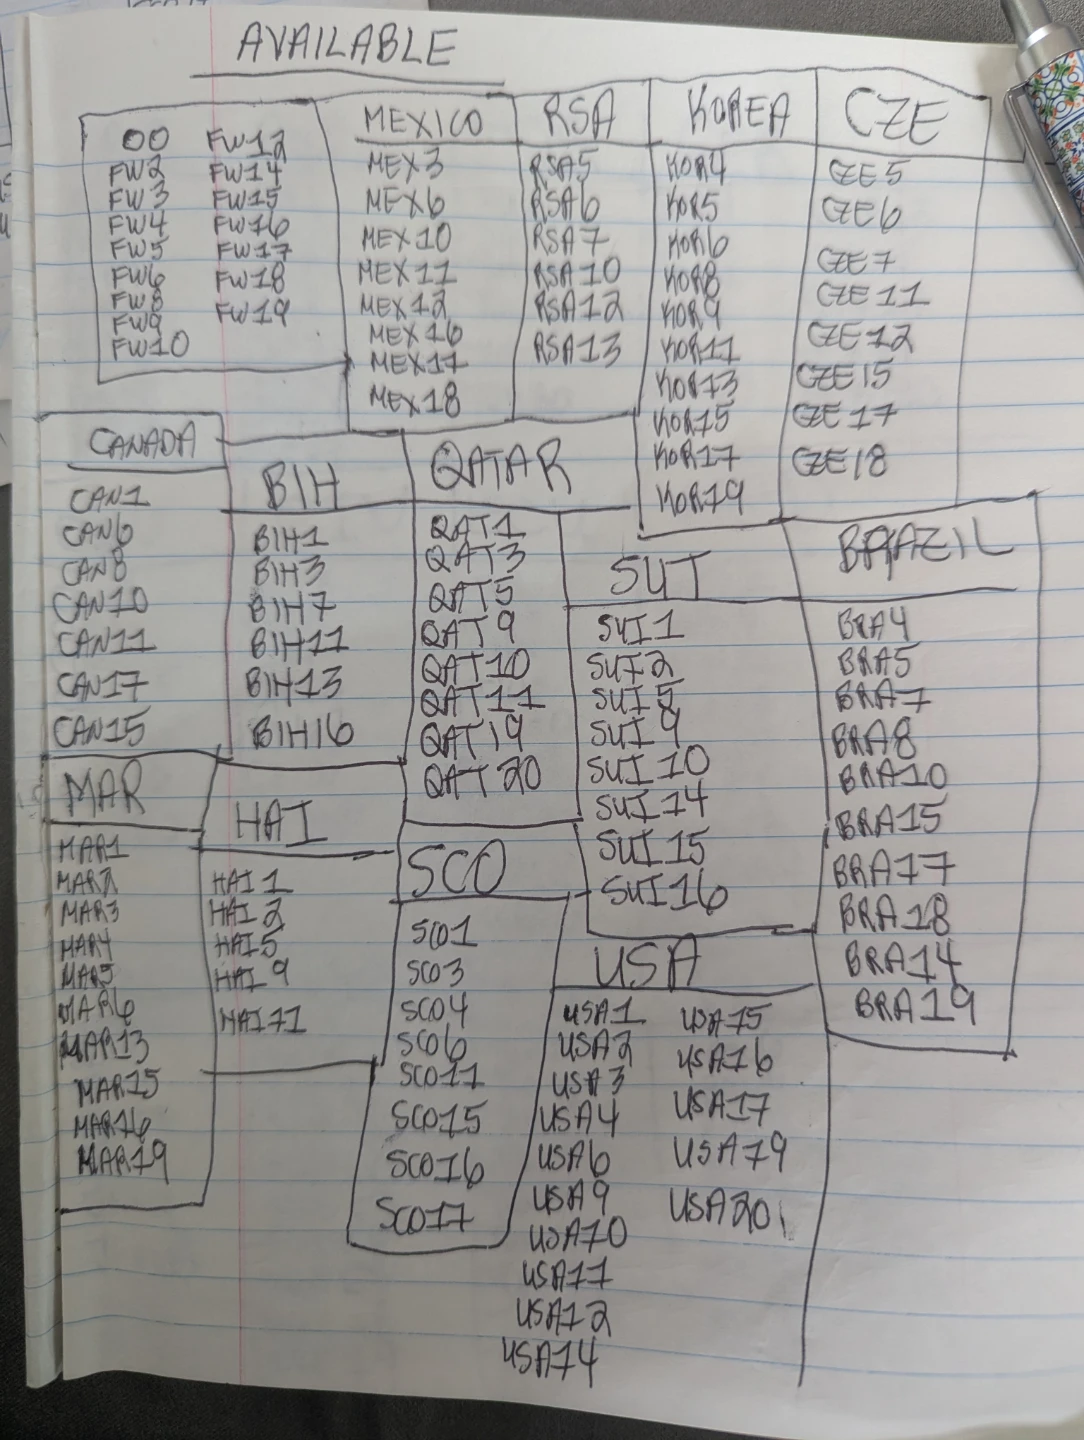 AVAILABLE
00
FW2
FW3
FW4
FW5
FW6
FW8
FW9
FW10
FW12
FW14
FW15
FW16
FW17
FW18
FW19
MEXICO
MEX3
MEX6
MEX10
MEX11
MEX12
MEX16
MEX17
MEX18
RSA
RSA5
RSA6
RSA7
RSA10
RSA12
RSA13
KOREA
KOR4
KOR5
KOR6
KOR8
KOR9
KOR11
KOR13
KOR15
KOR17
KOR19
CZE
CZE5
CZE6
CZE7
CZE11
CZE12
CZE15
CZE17
CZE18
CANADA
CAN1
CAN6
CAN8
CAN10
CAN11
CAN17
CAN15
BIH
BIH1
BIH3
BIH7
BIH11
BIH13
BIH16
QATAR
QAT1
QAT3
QAT5
QAT9
QAT10
QAT11
QAT19
QAT20
SUI
SUI1
SUI2
SUI5
SUI9
SUI10
SUI14
SUI15
SUI16
BRAZIL
BRA4
BRA5
BRA7
BRA8
BRA10
BRA15
BRA17
BRA18
BRA14
BRA19
MAR
MAR1
MAR2
MAR3
MAR4
MAR5
MAR6
MAR13
MAR15
MAR16
MAR19
HAI
HAI1
HAI2
HAI5
HAI9
HAI11
SCO
SCO1
SCO3
SCO4
SCO6
SCO11
SCO15
SCO16
SCO17
USA
USA1
USA2
USA3
USA4
USA6
USA9
USA10
USA11
USA12
USA14
USA15
USA16
USA17
USA19
USA20